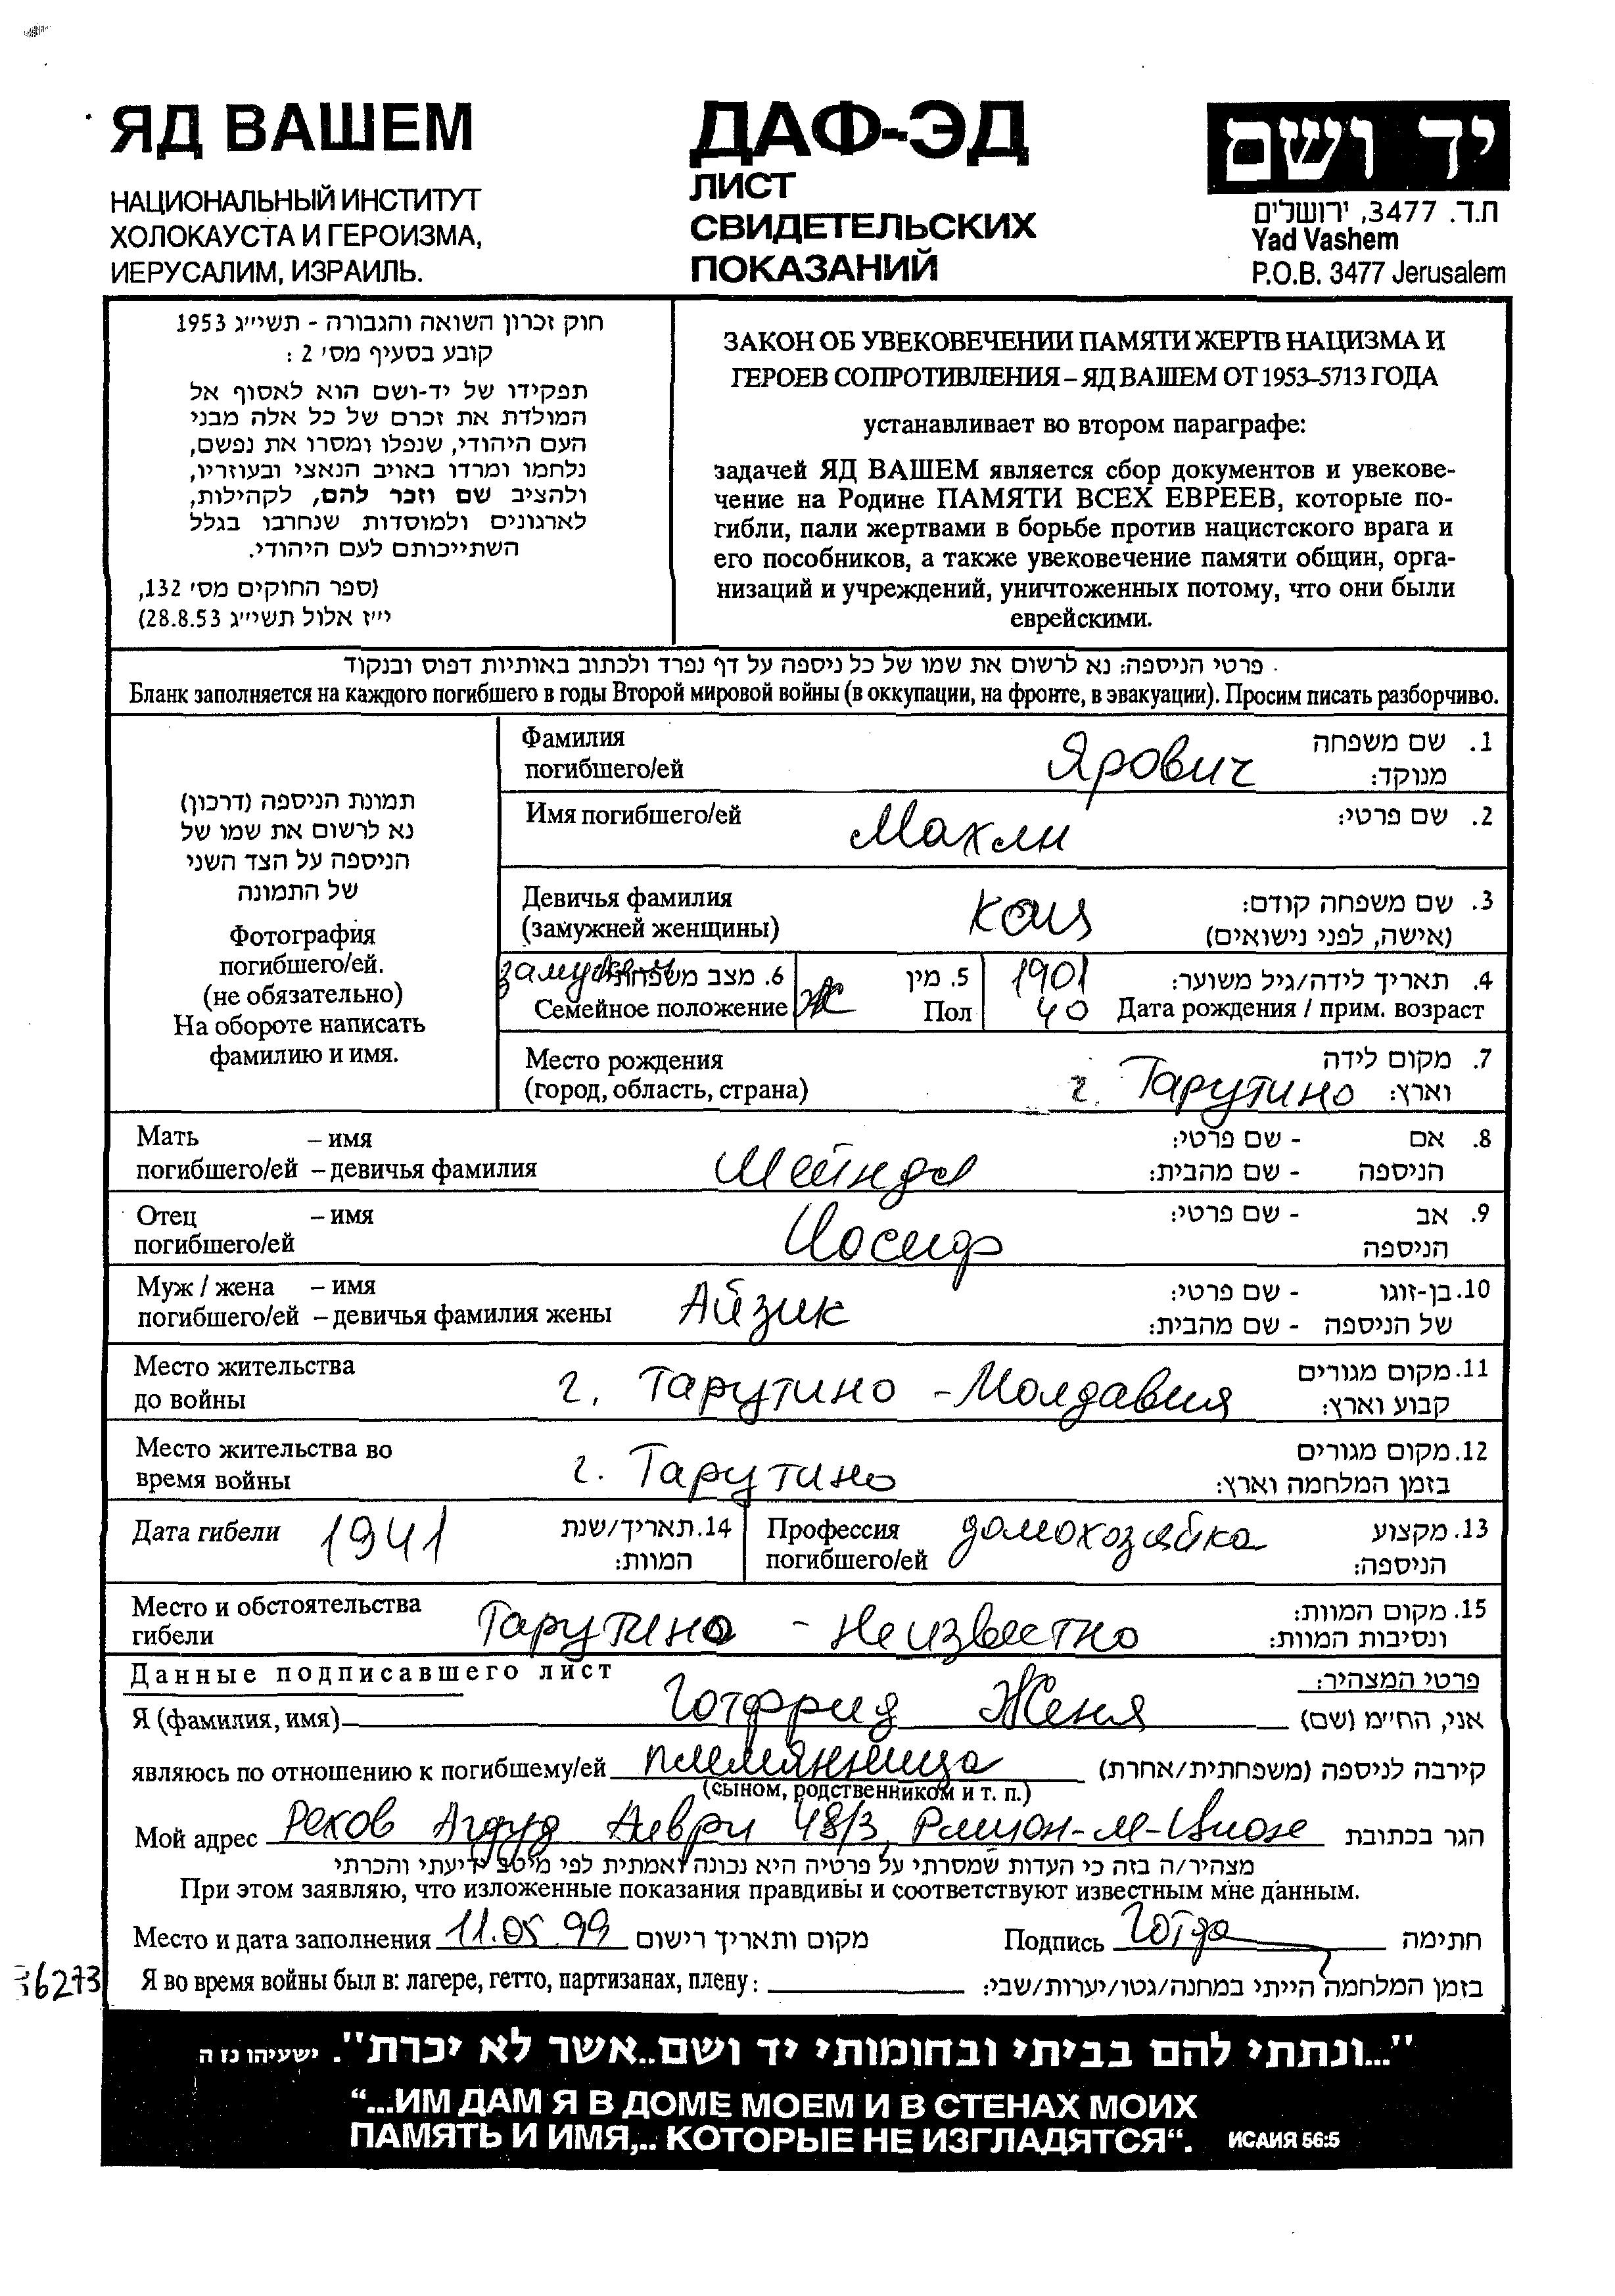 ЯД ВАШЕМ
НАЦИОНАЛЬНЫЙ ИНСТИТУТ
ХОЛОКАУСТА И ГЕРОИЗМА,
ИЕРУСАЛИМ, ИЗРАИЛЬ.
ДАФ-ЭД
ЛИСТ
СВИДЕТЕЛЬСКИХ
ПОКАЗАНИЙ
יד ושם
ת.ד. 3477, ירושלים
Yad Vashem
P.O.B. 3477 Jerusalem
חוק זכרון השואה והגבורה - תשי״ג 1953
קובע בסעיף מס׳ 2 :
תפקידו של יד-ושם הוא לאסוף אל
המולדת את זכרם של כל אלה מבני
העם היהודי, שנפלו ומסרו את נפשם,
נלחמו ומרדו באויב הנאצי ובעוזריו,
ולהציב שם וזכר להם, לקהילות,
לארגונים ולמוסדות שנחרבו בגלל
השתייכותם לעם היהודי.
(ספר החוקים מס׳ 132,
י״ז אלול תשי״ג 28.8.53)
ЗАКОН ОБ УВЕКОВЕЧЕНИИ ПАМЯТИ ЖЕРТВ НАЦИЗМА И
ГЕРОЕВ СОПРОТИВЛЕНИЯ – ЯД ВАШЕМ ОТ 1953–5713 ГОДА
устанавливает во втором параграфе:
задачей ЯД ВАШЕМ является сбор документов и увекове-
чение на Родине ПАМЯТИ ВСЕХ ЕВРЕЕВ, которые по-
гибли, пали жертвами в борьбе против нацистского врага и
его пособников, а также увековечение памяти общин, орга-
низаций и учреждений, уничтоженных потому, что они были
еврейскими.
פרטי הניספה: נא לרשום את שמו של כל ניספה על דף נפרד ולכתוב באותיות דפוס ובנקוד
Бланк заполняется на каждого погибшего в годы Второй мировой войны (в оккупации, на фронте, в эвакуации). Просим писать разборчиво.
תמונת הניספה (דרכון)
נא לרשום את שמו של
הניספה על הצד השני
של התמונה
Фотография
погибшего/ей.
(не обязательно)
На обороте написать
фамилию и имя.
Фамилия
погибшего/ей
Ярович
1. שם משפחה
מנוקד:
Имя погибшего/ей
Махли
2. שם פרטי:
Девичья фамилия
(замужней женщины)
Кац
3. שם משפחה קודם:
(אישה, לפני נישואים)
замужем
6. מצב משפחתי
Семейное положение
ж
5. מין
Пол
1901
40
4. תאריך לידה/גיל משוער:
Дата рождения / прим. возраст
Место рождения
(город, область, страна)
г. Тарутино
7. מקום לידה
וארץ:
Мать – имя
погибшего/ей – девичья фамилия
Шейндл
8. אם - שם פרטי:
הניספה - שם מהבית:
Отец – имя
погибшего/ей
Иосиф
9. אב - שם פרטי:
הניספה
Муж / жена – имя
погибшего/ей – девичья фамилия жены
Айзик
10. בן-זוגו - שם פרטי:
של הניספה - שם מהבית:
Место жительства
до войны
г. Тарутино - Молдавия
11. מקום מגורים
קבוע וארץ:
Место жительства во
время войны
г. Тарутино
12. מקום מגורים
בזמן המלחמה וארץ:
Дата гибели
1941
14. תאריך/שנת
המוות:
Профессия
погибшего/ей
домохозяйка
13. מקצוע
הניספה:
Место и обстоятельства
гибели
Тарутино - неизвестно
15. מקום המוות:
ונסיבות המוות:
Данные подписавшего лист
פרטי המצהיר:
Я (фамилия, имя) Готфрид Женя אני, החי״מ (שם)
являюсь по отношению к погибшему/ей племянница קירבה לניספה (משפחתית/אחרת)
(сыном, родственником и т. п.)
Мой адрес Рехов Агдуд Аиври 48/3, Ришон-л-Цион הגר בכתובת
מצהיר/ה בזה כי העדות שמסרתי על פרטיה היא נכונה ואמתית לפי מיטב ידיעתי והכרתי
При этом заявляю, что изложенные показания правдивы и соответствуют известным мне данным.
Место и дата заполнения 11.05.99 מקום ותאריך רישום
Подпись חתימה
Я во время войны был в: лагере, гетто, партизанах, плену: בזמן המלחמה הייתי במחנה/גטו/יערות/שבי:
"...ונתתי להם בביתי ובחומותי יד ושם..אשר לא יכרת". ישעיהו נז ה
“...ИМ ДАМ Я В ДОМЕ МОЕМ И В СТЕНАХ МОИХ
ПАМЯТЬ И ИМЯ,.. КОТОРЫЕ НЕ ИЗГЛАДЯТСЯ“. ИСАИЯ 56:5